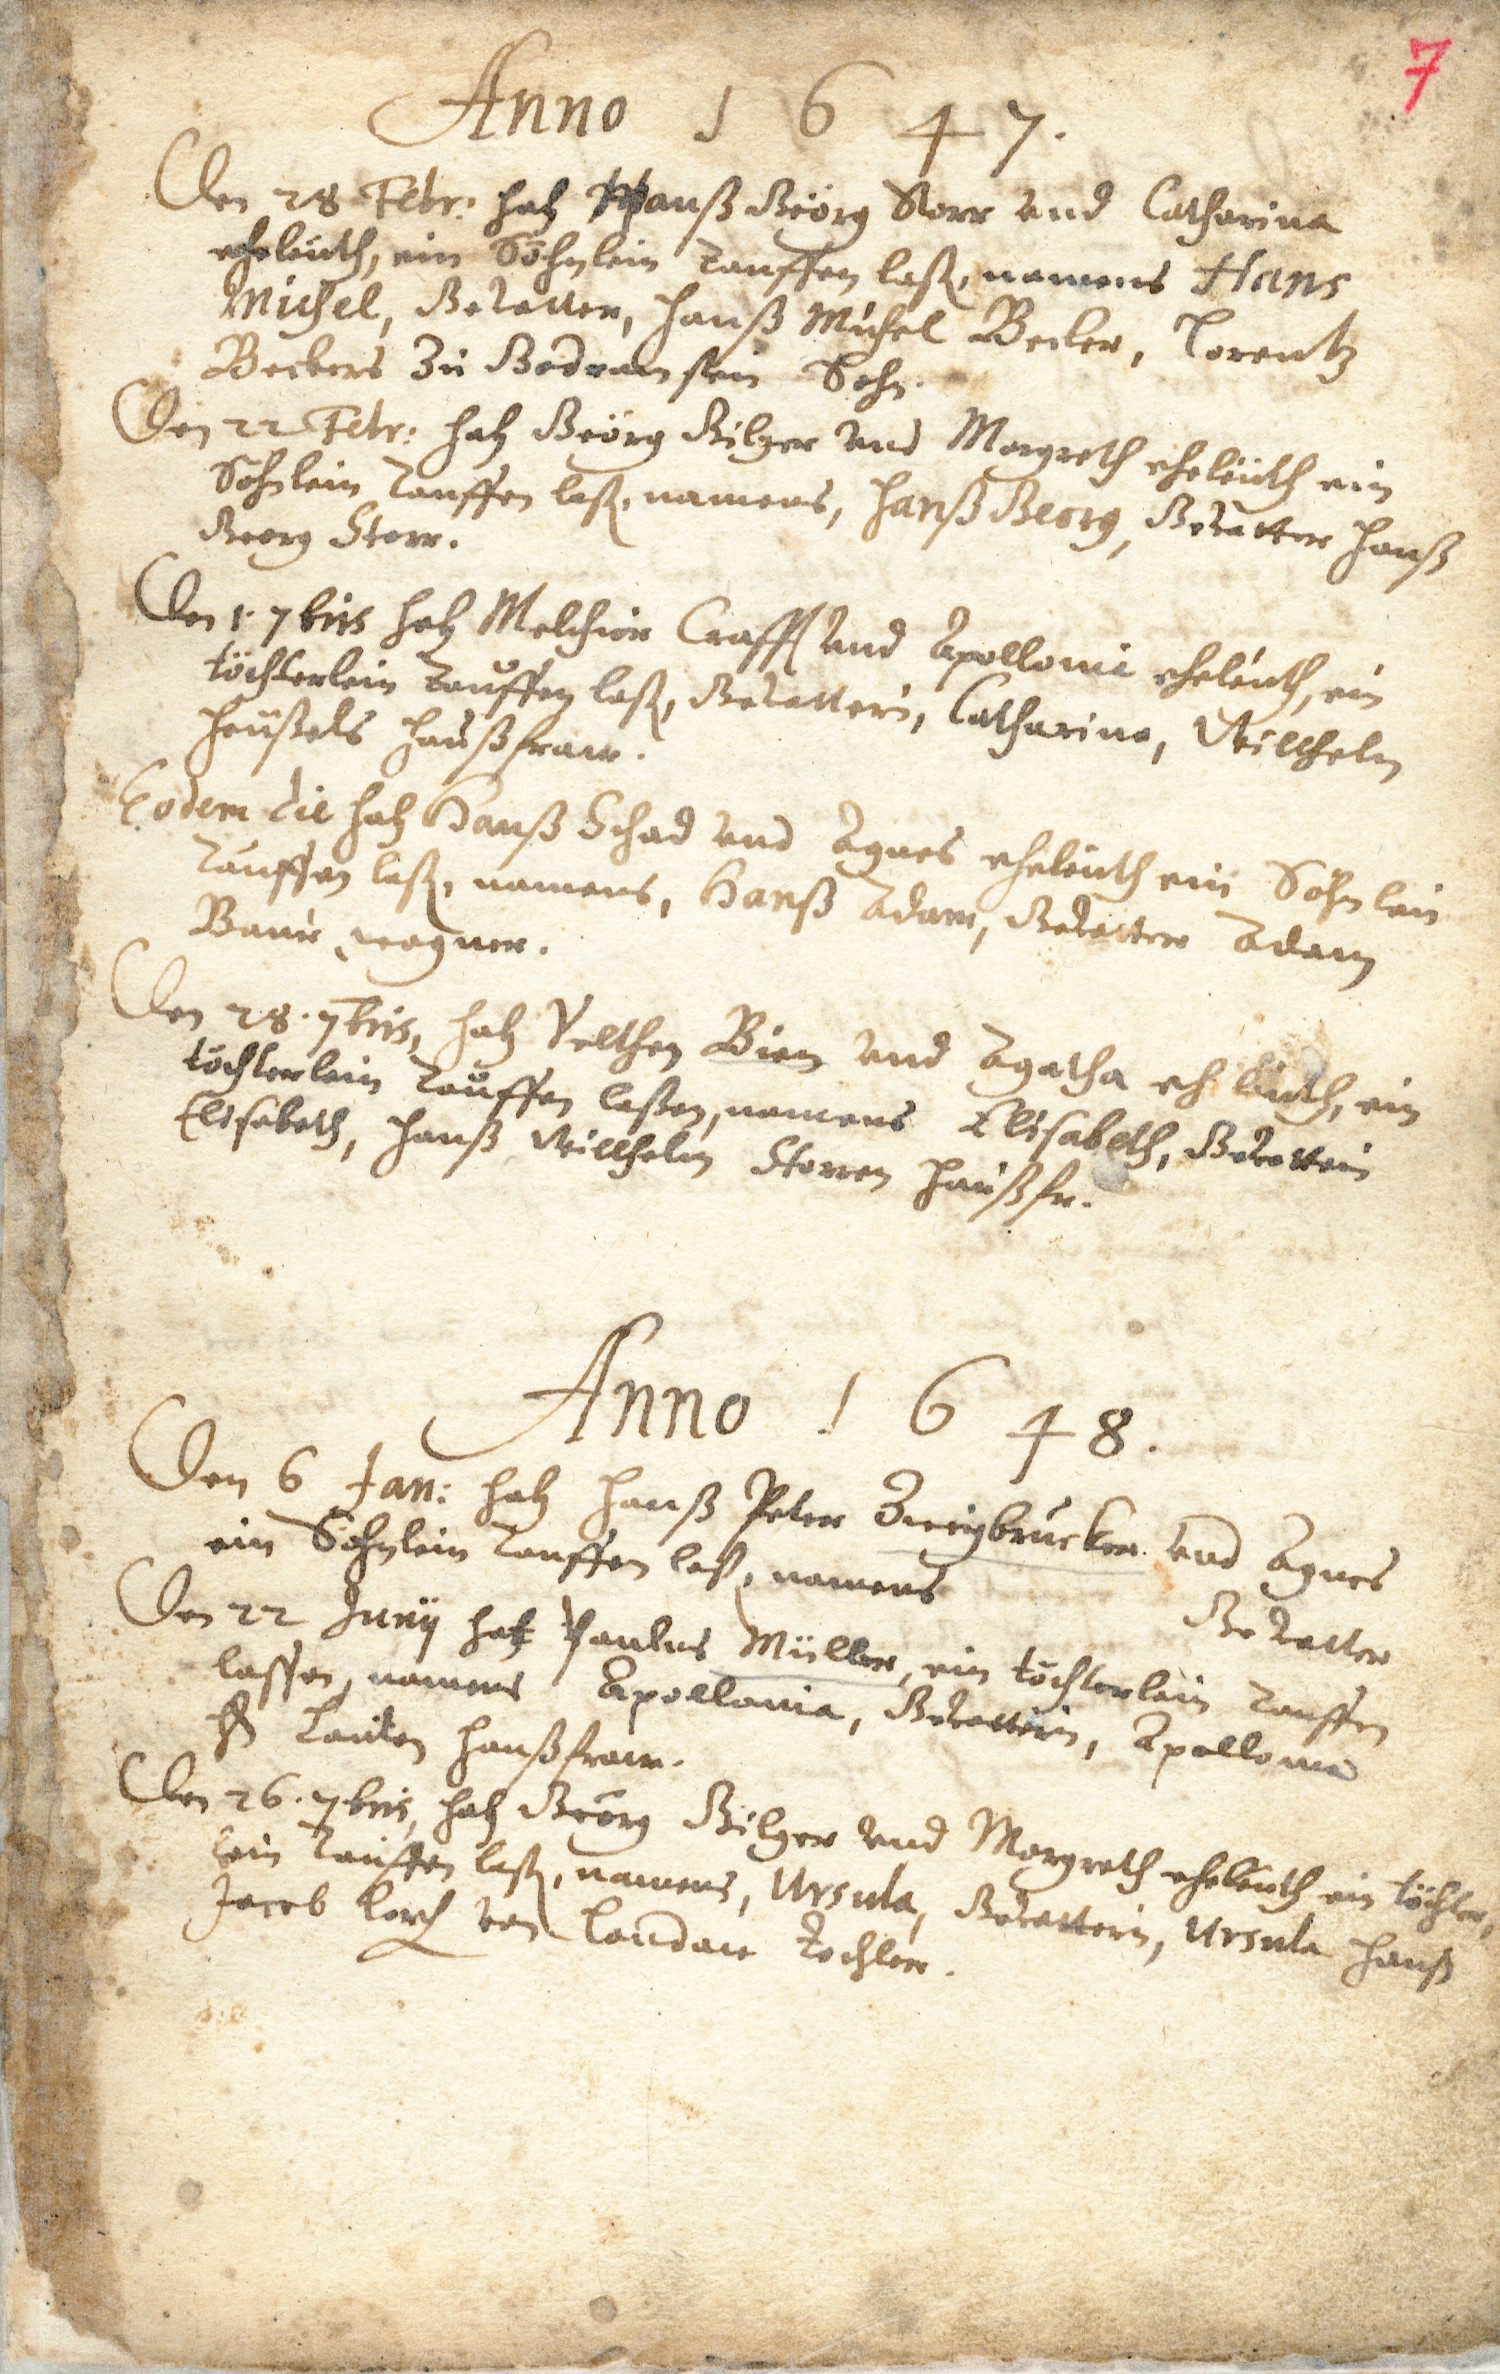 7
Anno 1647.
Den 28 Febr: hatt Hanß Geörg Storr und Catharina
eheleüth, ein Söhnlein Tauffen laß, namens Hans
Michel, Gevatter, Hanß Michel Becker, Lorentz
Beckers Zu sein Sohn.
Den 22 Febr: hatt Geörg Bilger und Margreth eheleüth ein
Söhnlein Tauffen laß, namens, Hanß Georg, Gevatter Hanß
Georg Storr.
Den 1. 7bris hatt Melchior Crafft und Apolloni eheleüth, ein
töchterlein Tauffen laß, Gevatterin, Catharina, Willhelm
Heüßels Haußfraw.
Eodem die hatt Hanß Schad und Agnes eheleüth ein Söhnlein
Tauffen laß, namens, Hanß Adam, Gevatter Adam
Baur, wagner.
Den 28. 7bris, hatt Velthen Bien und Agatha eheleüth, ein
töchterlein Tauffen laßen, namens Elisabeth, Gevatterin
Elisabeth, Hanß Willhelm Storren Haußfr.
Anno 1648.
Den 6 Jan: hatt Hanß Peter Zweigbrucker und Agnes
ein Söhnlein Tauffen laß, namens Gevatter
Den 22 Junÿ hatt Paulus Müller, ein töchterlein Tauffen
lassen, namens Apollonia, Gevatterin, Apollonia
Haußfraw.
Den 26. 7bris, hatt Geörg Bilger und Margreth eheleüth ein töchter,
lein Tauffen laß, namens, Ursula, Gevatterin, Ursula Hanß
Jacob Lerch von Landaw Tochter.